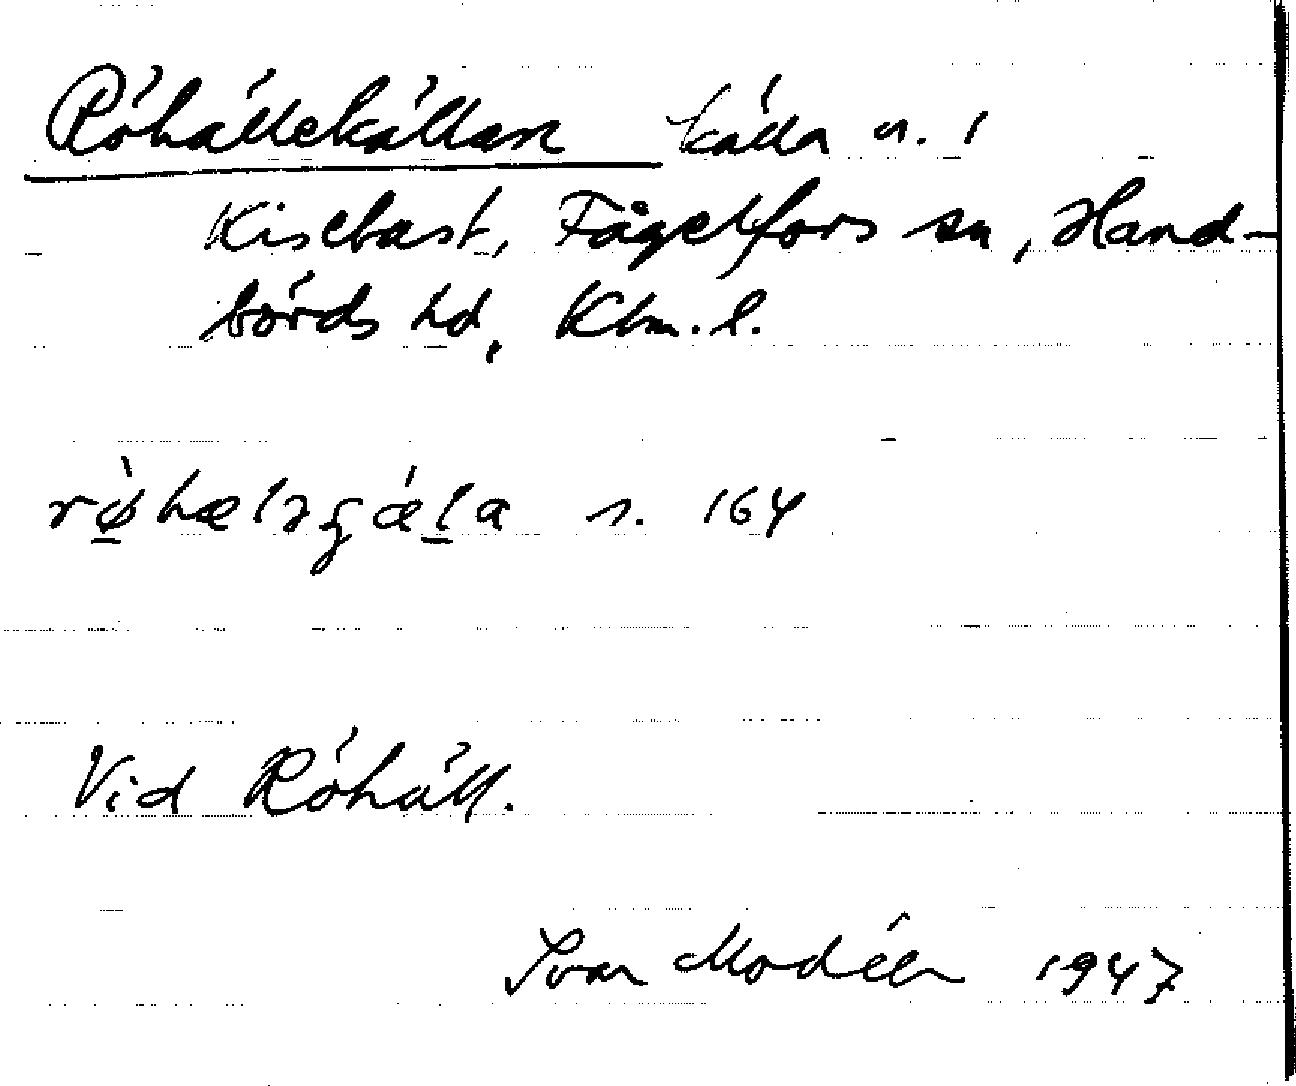 Röhällekällan källa n. 1
Kisebast, Fågelfors sn, Hand-
börds hd, Klm. l.
rø̀hælǝɕǽla s. 164
Vid Röhäll.
Ivar Modéer 1947